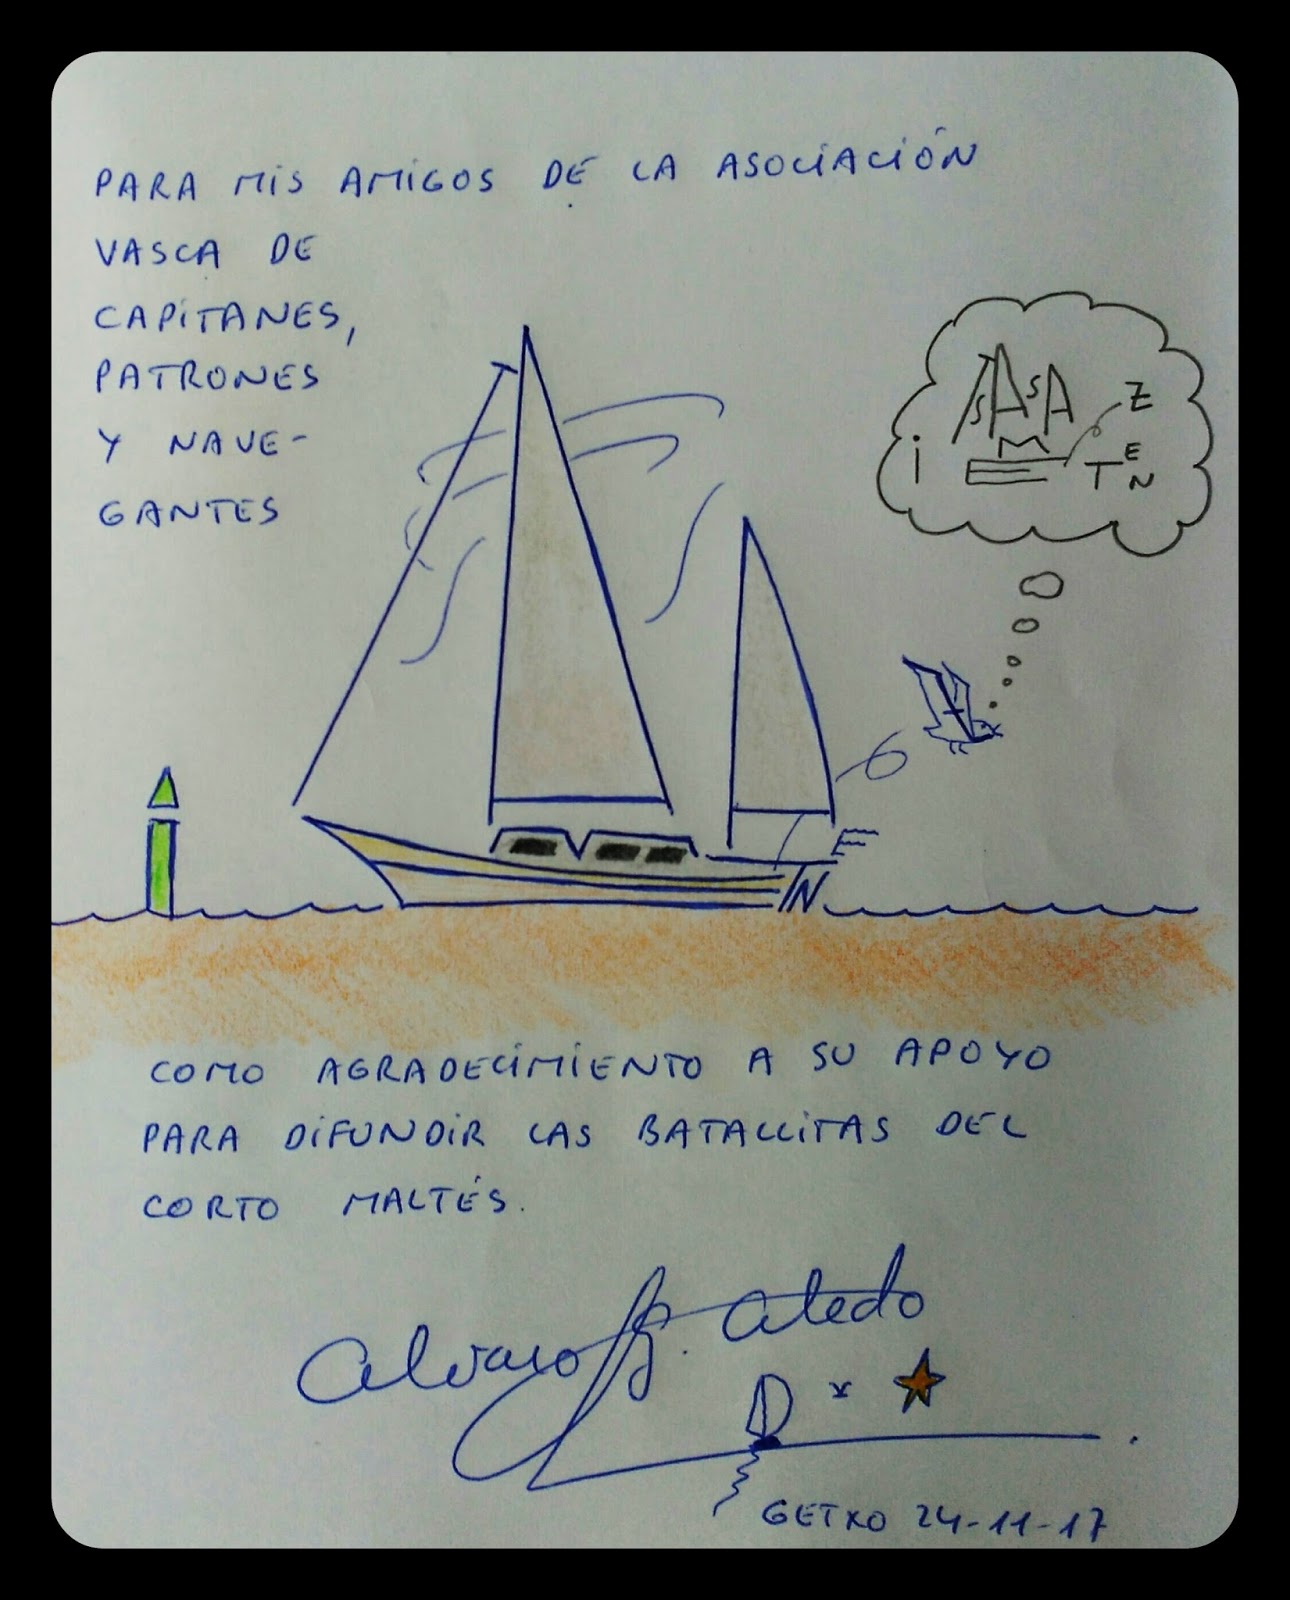 PARA MIS AMIGOS DE LA ASOCIACIÓN
VASCA DE
CAPITANES,
PATRONES
Y NAVE-
GANTES
COMO AGRADECIMIENTO A SU APOYO
PARA DIFUNDIR LAS BATALLITAS DEL
CORTO MALTÉS.
Alvaro G. Aledo
GETXO 24-11-17